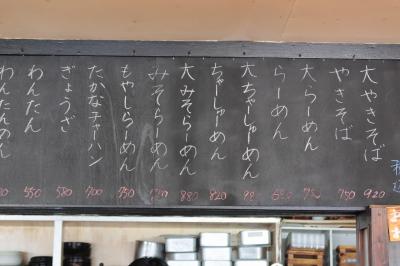 大やきそば 920
やきそば 750
大らーめん 750
らーめん
大ちゃしゅーめん
ちゃーしゅーめん 820
大みそらーめん 880
みそらーめん
もやしらーめん 750
たかなチャーハン 700
ぎょうざ 580
わんたん 550
わんたんめん
税込